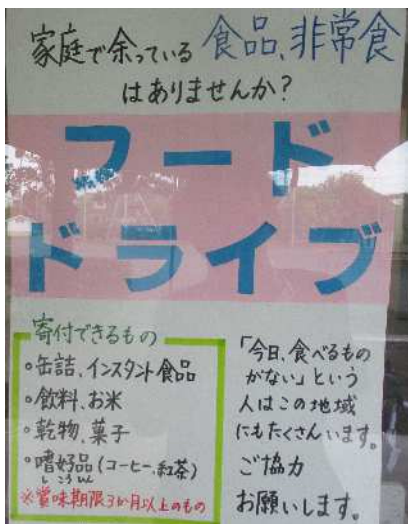 家庭で余っている 食品、非常食
はありませんか?
フード
ドライブ
寄付できるもの
○缶詰、インスタント食品
○飲料、お米
○乾物、菓子
○嗜好品(コーヒー、紅茶)
しこうひん
※賞味期限3か月以上のもの
「今日、食べるもの
がない」という
人はこの地域
にもたくさんいます。
ご協力
お願いします。